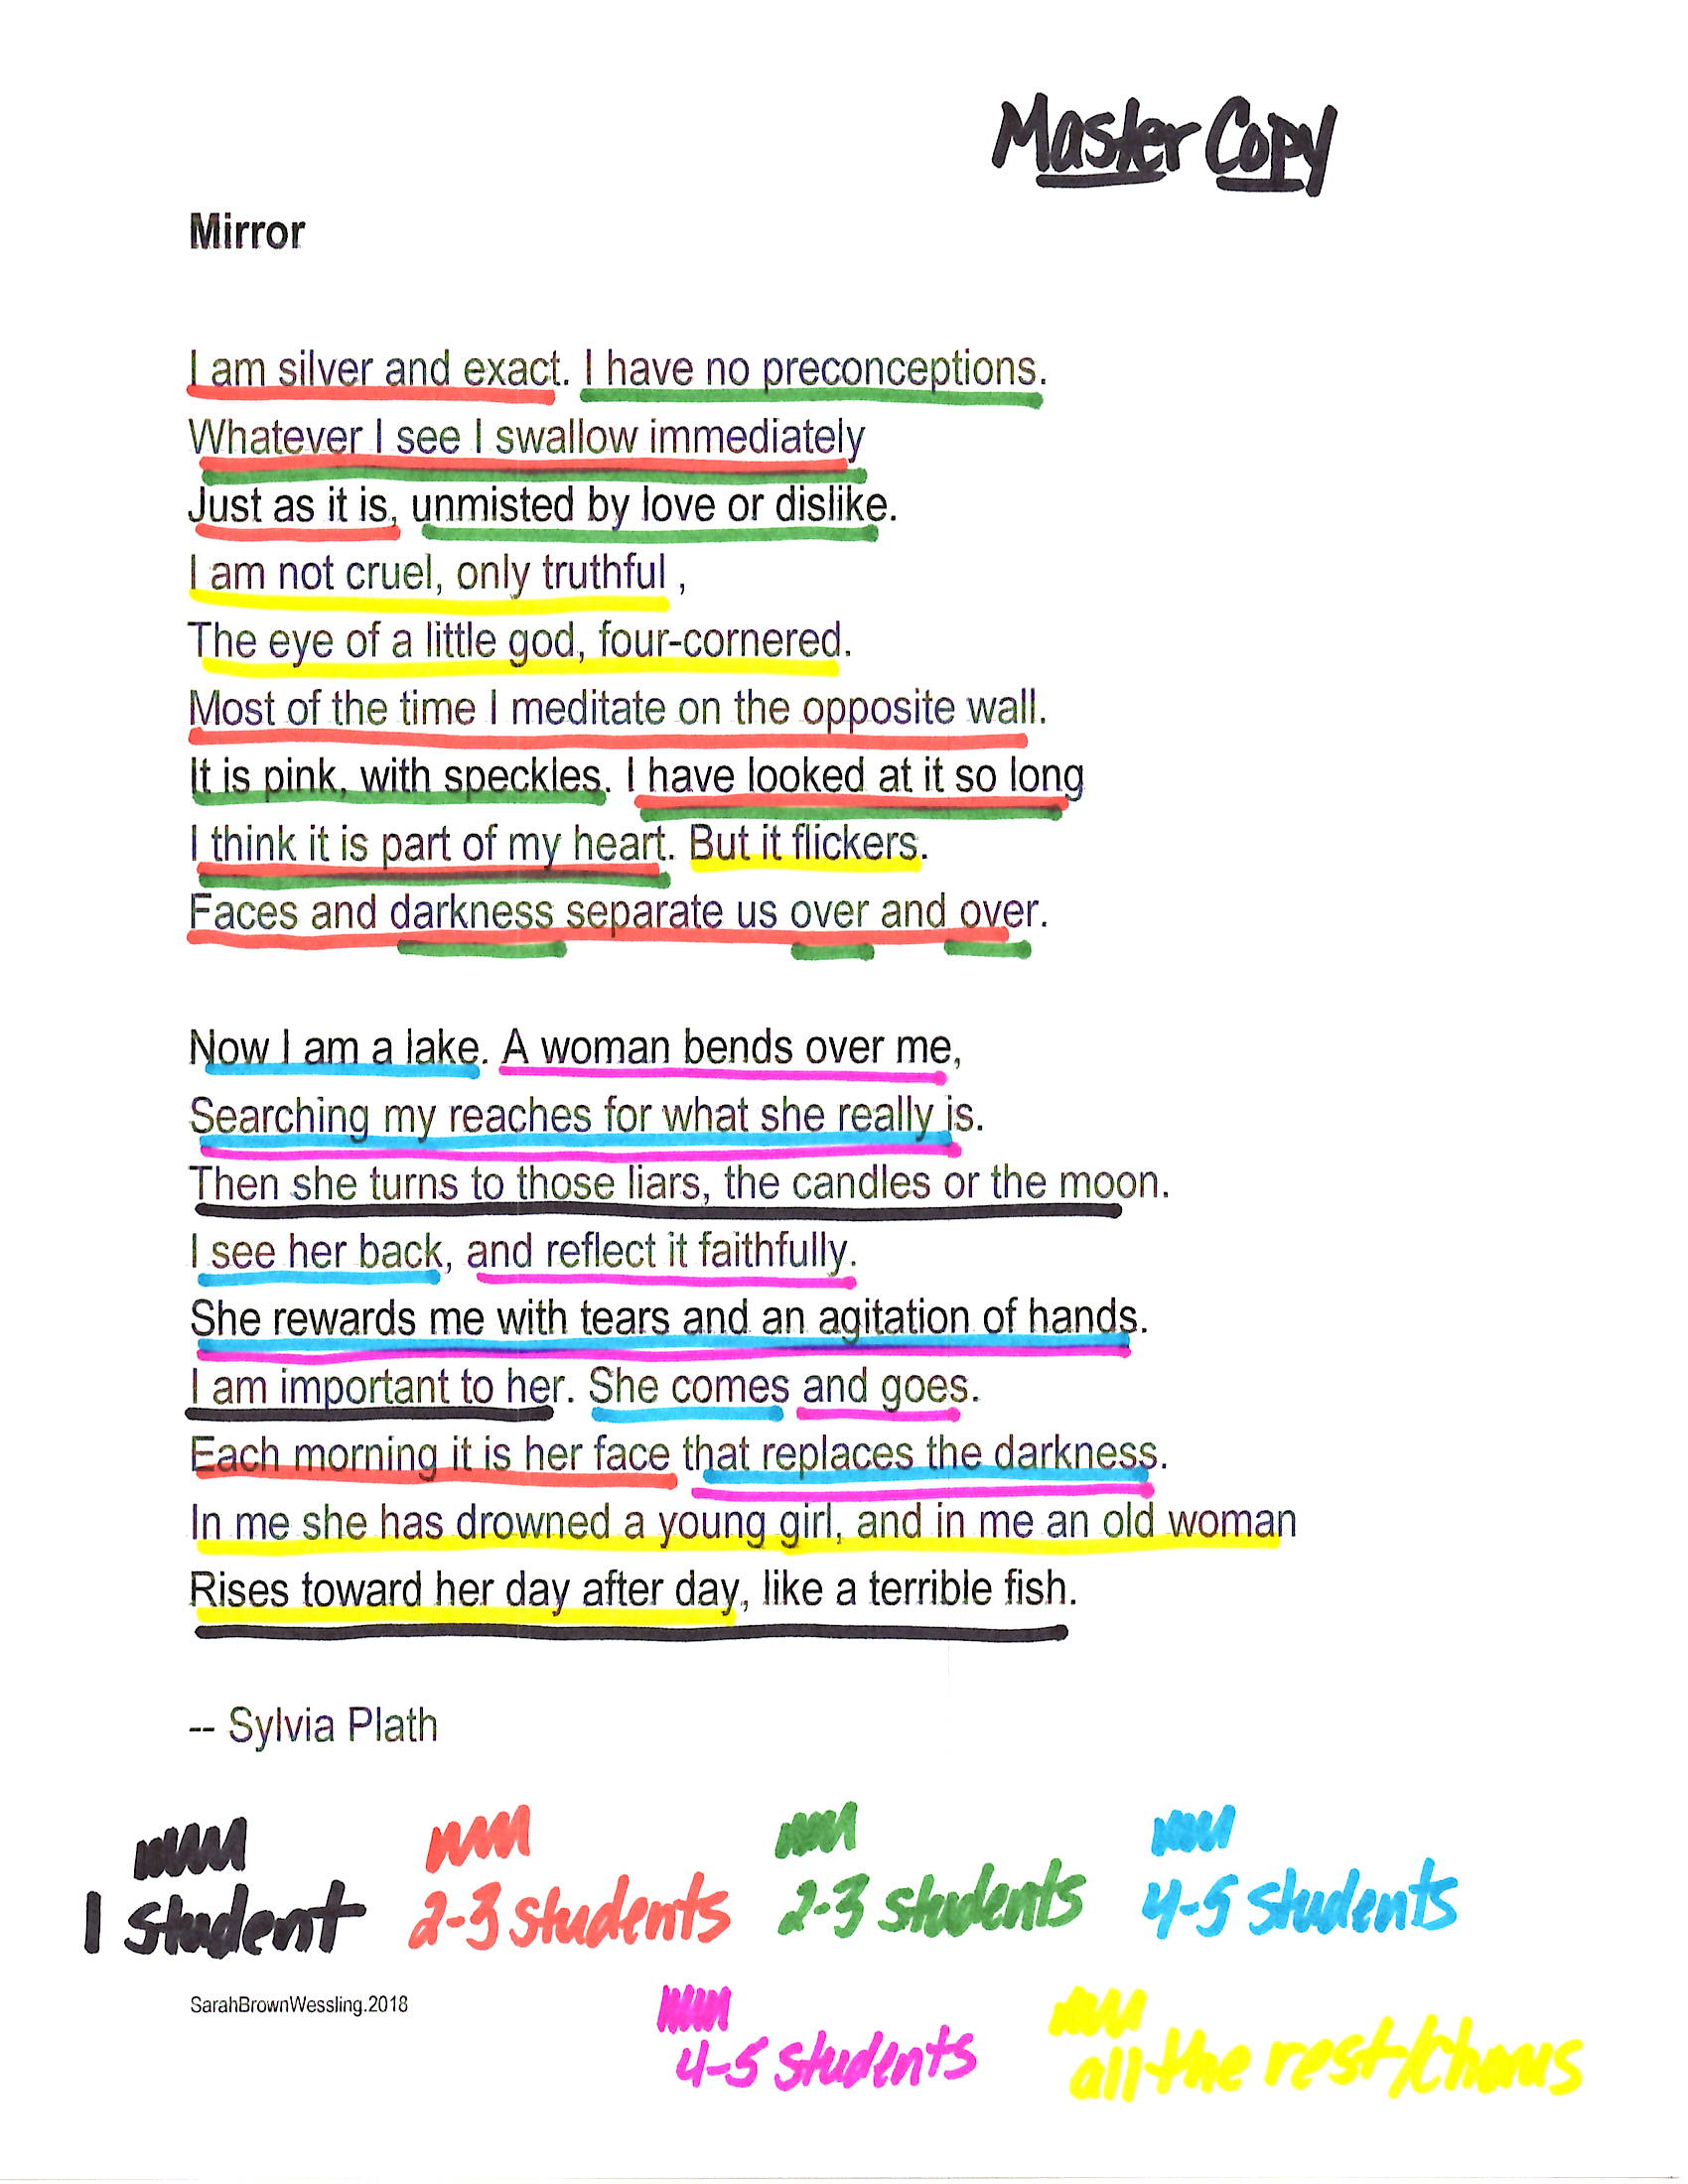 Master Copy
Mirror
I am silver and exact. I have no preconceptions.
Whatever I see I swallow immediately
Just as it is, unmisted by love or dislike.
I am not cruel, only truthful ,
The eye of a little god, four-cornered.
Most of the time I meditate on the opposite wall.
It is pink, with speckles. I have looked at it so long
I think it is part of my heart. But it flickers.
Faces and darkness separate us over and over.
Now I am a lake. A woman bends over me,
Searching my reaches for what she really is.
Then she turns to those liars, the candles or the moon.
I see her back, and reflect it faithfully.
She rewards me with tears and an agitation of hands.
I am important to her. She comes and goes.
Each morning it is her face that replaces the darkness.
In me she has drowned a young girl, and in me an old woman
Rises toward her day after day, like a terrible fish.
-- Sylvia Plath
1 student 2-3 students 2-3 students 4-5 students
SarahBrownWessling.2018
4-5 students all the rest/Chorus